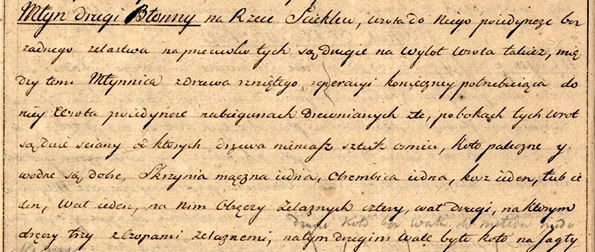 Młyn drugi Błonny na Rzece Ściklew, wrota do niego poiedyńcze bez
żadnego żelastwa naprzeciwko tych są drugie na wylot wrota takież, mię
dzy temi Młynnica z drzewa rzniętego, reperacyi konieczney potrzebuiąca do
niey Wrota poiedyńcze na biegunach Drewnianych złe, po bokach tych wrot
są dwie sciany od ktorych drzewa niemasz sztuk osmiu, Koło paleczne y
wodne są dobre, Skrzynia mączna iedna, Obembica iedna, kosz ieden, łub ie
den, wał ieden, na nim Obręczy żelaznych cztery, wał drugi, na ktorym
obręczy trzy z Czopami żelaznemi, na tym drugim wale było koło na Jagły
drugie Koło